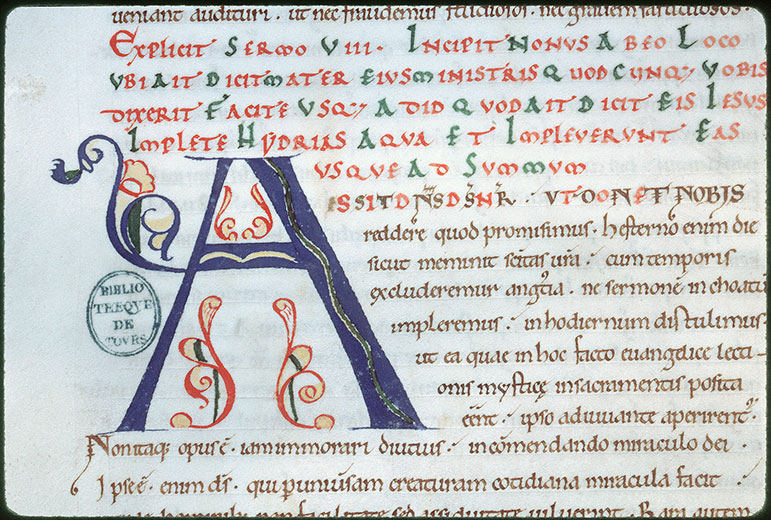 ueniant audituri. ut nec fraudemus studiosos. nec grauem fastidiosos.
EXPLICIT SERMO VIII. INCIPIT NONUS AB EO LOCO
UBI AIT DICIT MATER EIUS MINISTRIS QUODCUNQꝫ VOBIS
DIXERIT FACITE USQꝫ AD ID QUOD AIT DICIT EIS IESUS
IMPLETE HYDRIAS AQUA ET IMPLEVERUNT EAS
USQUE AD SUMMUM
A
SSIT DN̅S DS̅ NR̅. UT DONET NOBIS
reddere quod promisimus. hesterno enim die
sicut meminit sc̅itas ur̅a. cum temporis
excluderemur angustia. ne sermonē inchoatū
impleremus. in hodiernum distulimus.
ut ea quae in hoc facto euangelice lecti
onis mysticę in sacramentis posita
ēēnt. ipso adiuuante aperirent᷑.
Non itaqꝫ opus ē. iam immorari diutius. in cōmendando miraculo dei.
Ipse ē. enim ds̅. qui p uniuersam creaturam cotidiana miracula facit.
BIBLIO
THEQUE
DE
TOURS